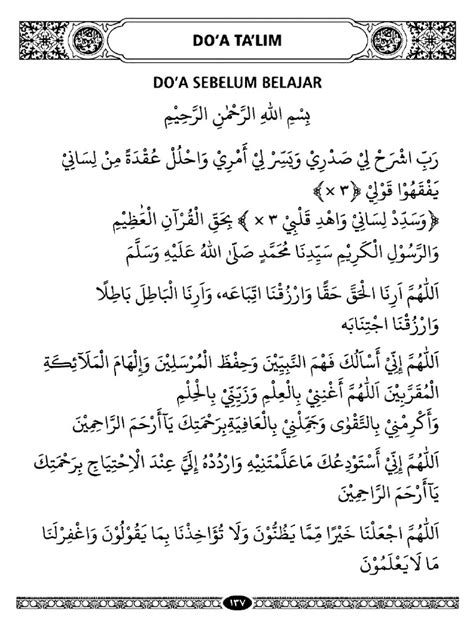 DO'A TA'LIM
DO'A SEBELUM BELAJAR
بِسْمِ اللهِ الرَّحْمٰنِ الرَّحِيْمِ
رَبِّ اشْرَحْ لِيْ صَدْرِيْ وَيَسِّرْ لِيْ أَمْرِيْ وَاحْلُلْ عُقْدَةً مِنْ لِسَانِيْ
يَفْقَهُوْا قَوْلِيْ ﴿٣ ×﴾
﴿وَسَدِدْ لِسَانِيْ وَاهْدِ قَلْبِيْ ٣ ×﴾ بِحَقِ الْقُرْآنِ الْعَظِيْمِ
وَالرَّسُوْلِ الْكَرِيْمِ سَيِّدِنَا مُحَمَّدٍ صَلَى اللهُ عَلَيْهِ وَسَلَّمَ
اَللّٰهُمَّ اَرِنَا الْحَقَّ حَقًّا وَارْزُقْنَا اتِّبَاعَه، وَاَرِنَا الْبَاطِلَ بَاطِلًا
وَارْزُقْنَا اجْتِنَابَه
اَللّٰهُمَّ إِنِّيْ أَسْأَلُكَ فَهْمَ النَّبِيِّيْنَ وَحِفْظَ الْمُرْسَلِيْنَ وَإِلْهَامَ الْمَلَآئِكَةِ
الْمُقَرَّبِيْنَ اَللّٰهُمَّ أَغْنِنِيْ بِالْعِلْمِ وَزَيِّنِّيْ بِالْحِلْمِ
وَأَكْرِمْنِيْ بِالتَّقْوٰى وَجَمِّلْنِيْ بِالْعَافِيَةِبِرَحْمَتِكَ يَآأَرْحَمَ الرَّاحِمِيْنَ
اَللّٰهُمَّ إِنِّيْ أَسْتَوْدِعُكَ مَاعَلَّمْتَنِيْهِ وَارْدُدْهُ إِلَيَّ عِنْدَ الْاِحْتِيَاجِ بِرَحْمَتِكَ
يَآأَرْحَمَ الرَّاحِمِيْنَ
اَللّٰهُمَّ اجْعَلْنَا خَيْرًا مِّمَّا يَظُنُّوْنَ وَلَا تُؤَاخِذْنَا بِمَا يَقُوْلُوْنَ وَاغْفِرْلَنَا
مَا لَا يَعْلَمُوْنَ
١٣٧